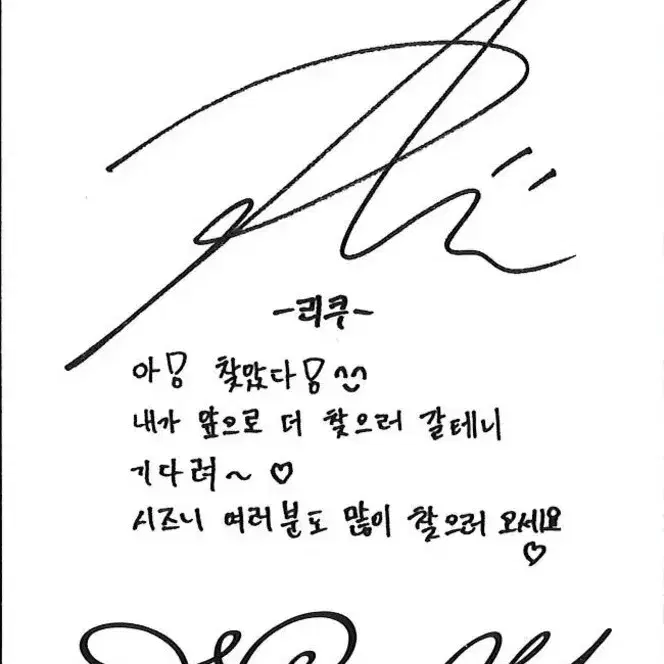 -리쿠-
아! 찾았다! ^^
내가 앞으로 더 찾으러 갈테니
기다려~ ♡
시즈니 여러분도 많이 찾으러 오세요
♡